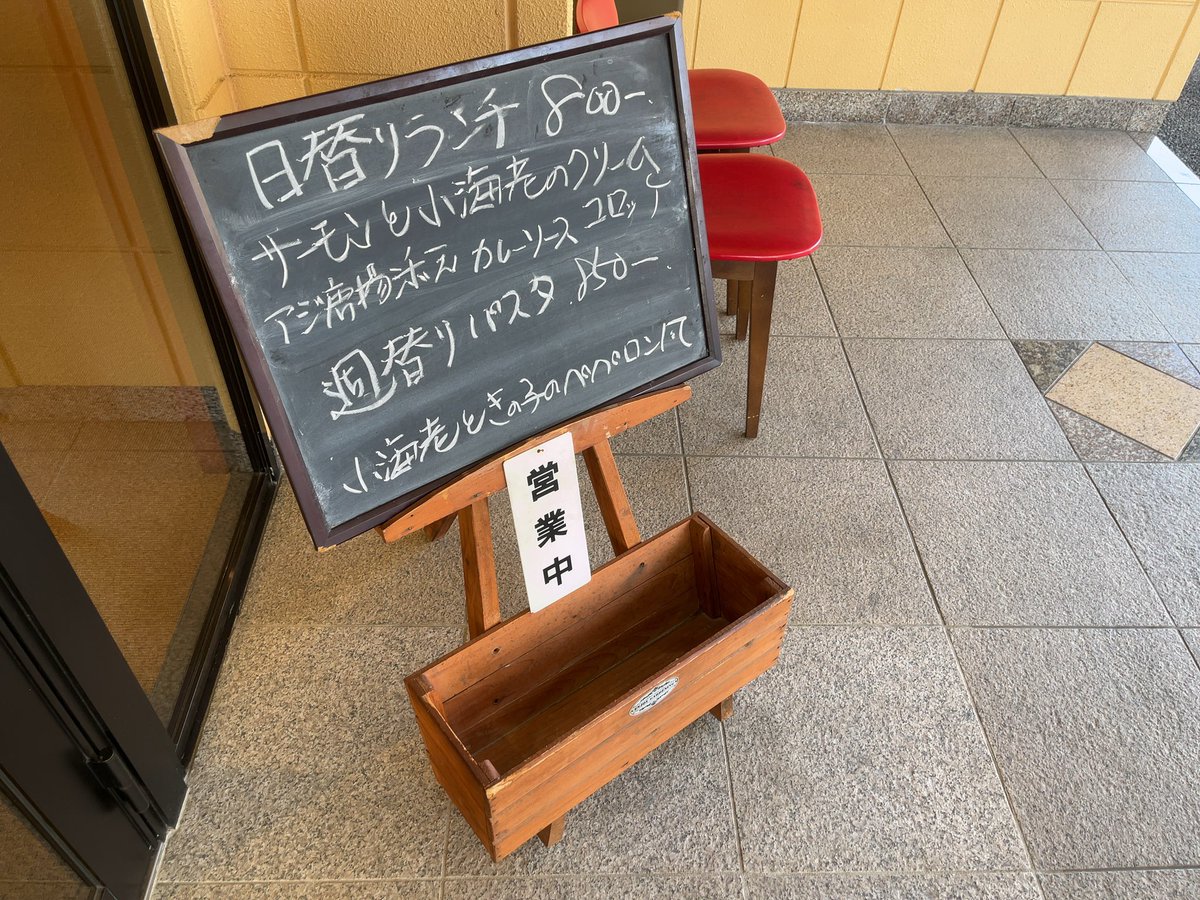 日替りランチ 800ー.
サーモンと小海老のクリームコロッケ
アジ唐揚添え カレーソース
週替りパスタ 850ー.
小海老ときの子のペペロンチーノ
営業中